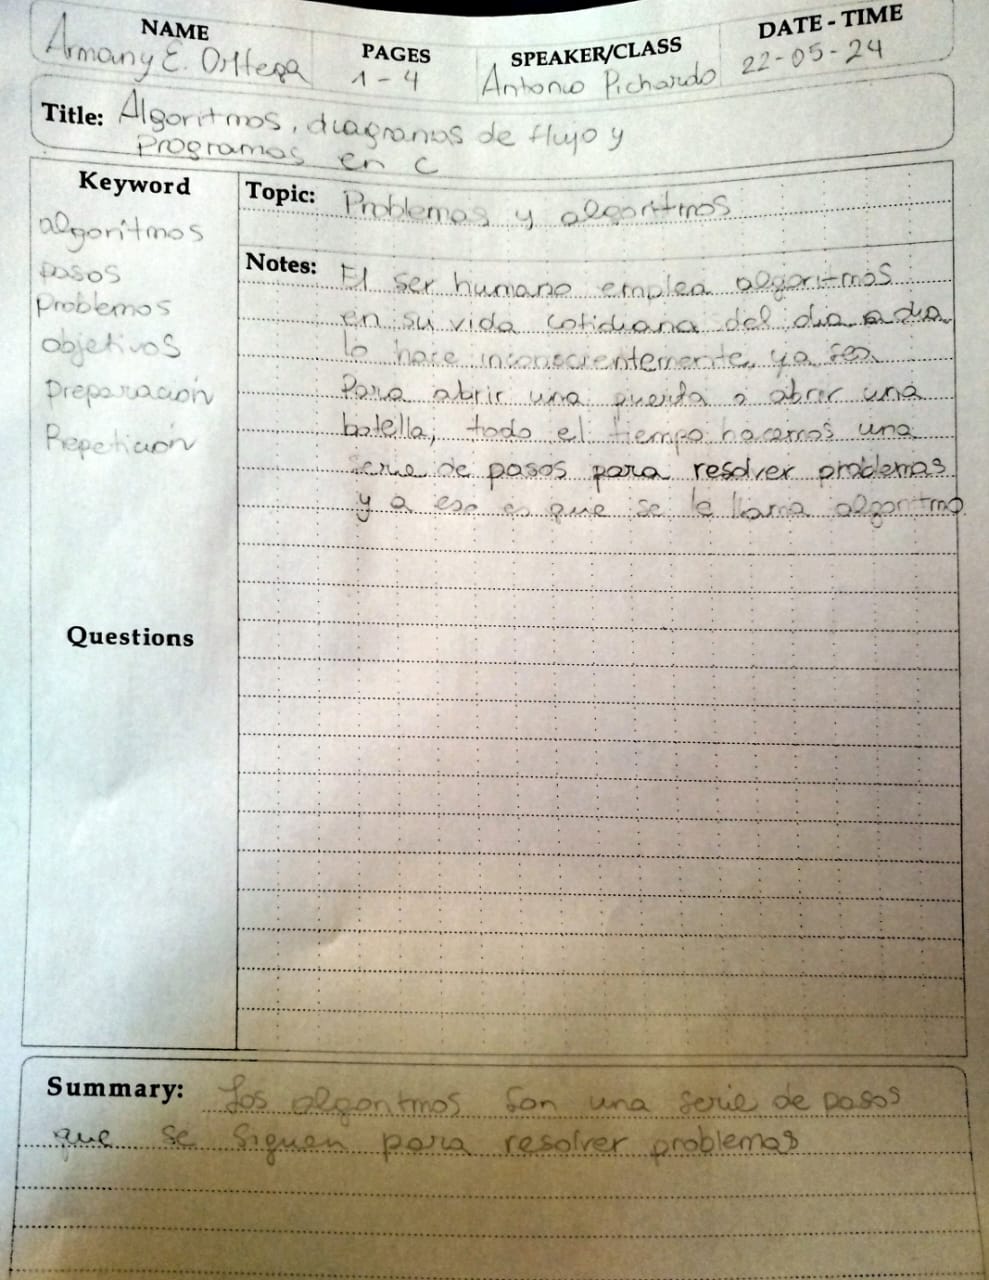 NAME
Armany E. Orttega
PAGES
1 - 4
SPEAKER/CLASS
Antonio Pichardo
DATE - TIME
22-05-24
Title: Algoritmos, diagramas de flujo y
Programas en C
Keyword
algorítmos
pasos
problemas
objetivos
Preparación
Repetición
Questions
Topic: Problemas y algoritmos
Notes: El ser humano emplea algoritmos
en su vida cotidiana del dia a dia
lo hace inconscientemente, ya sea
Para abrir una puerta o abrir una
botella, todo el tiempo hacemos una
serie de pasos para resolver problemas
y a eso es que se le llama algoritmo.
Summary: Los algoritmos son una serie de pasos
que se siguen para resolver problemas